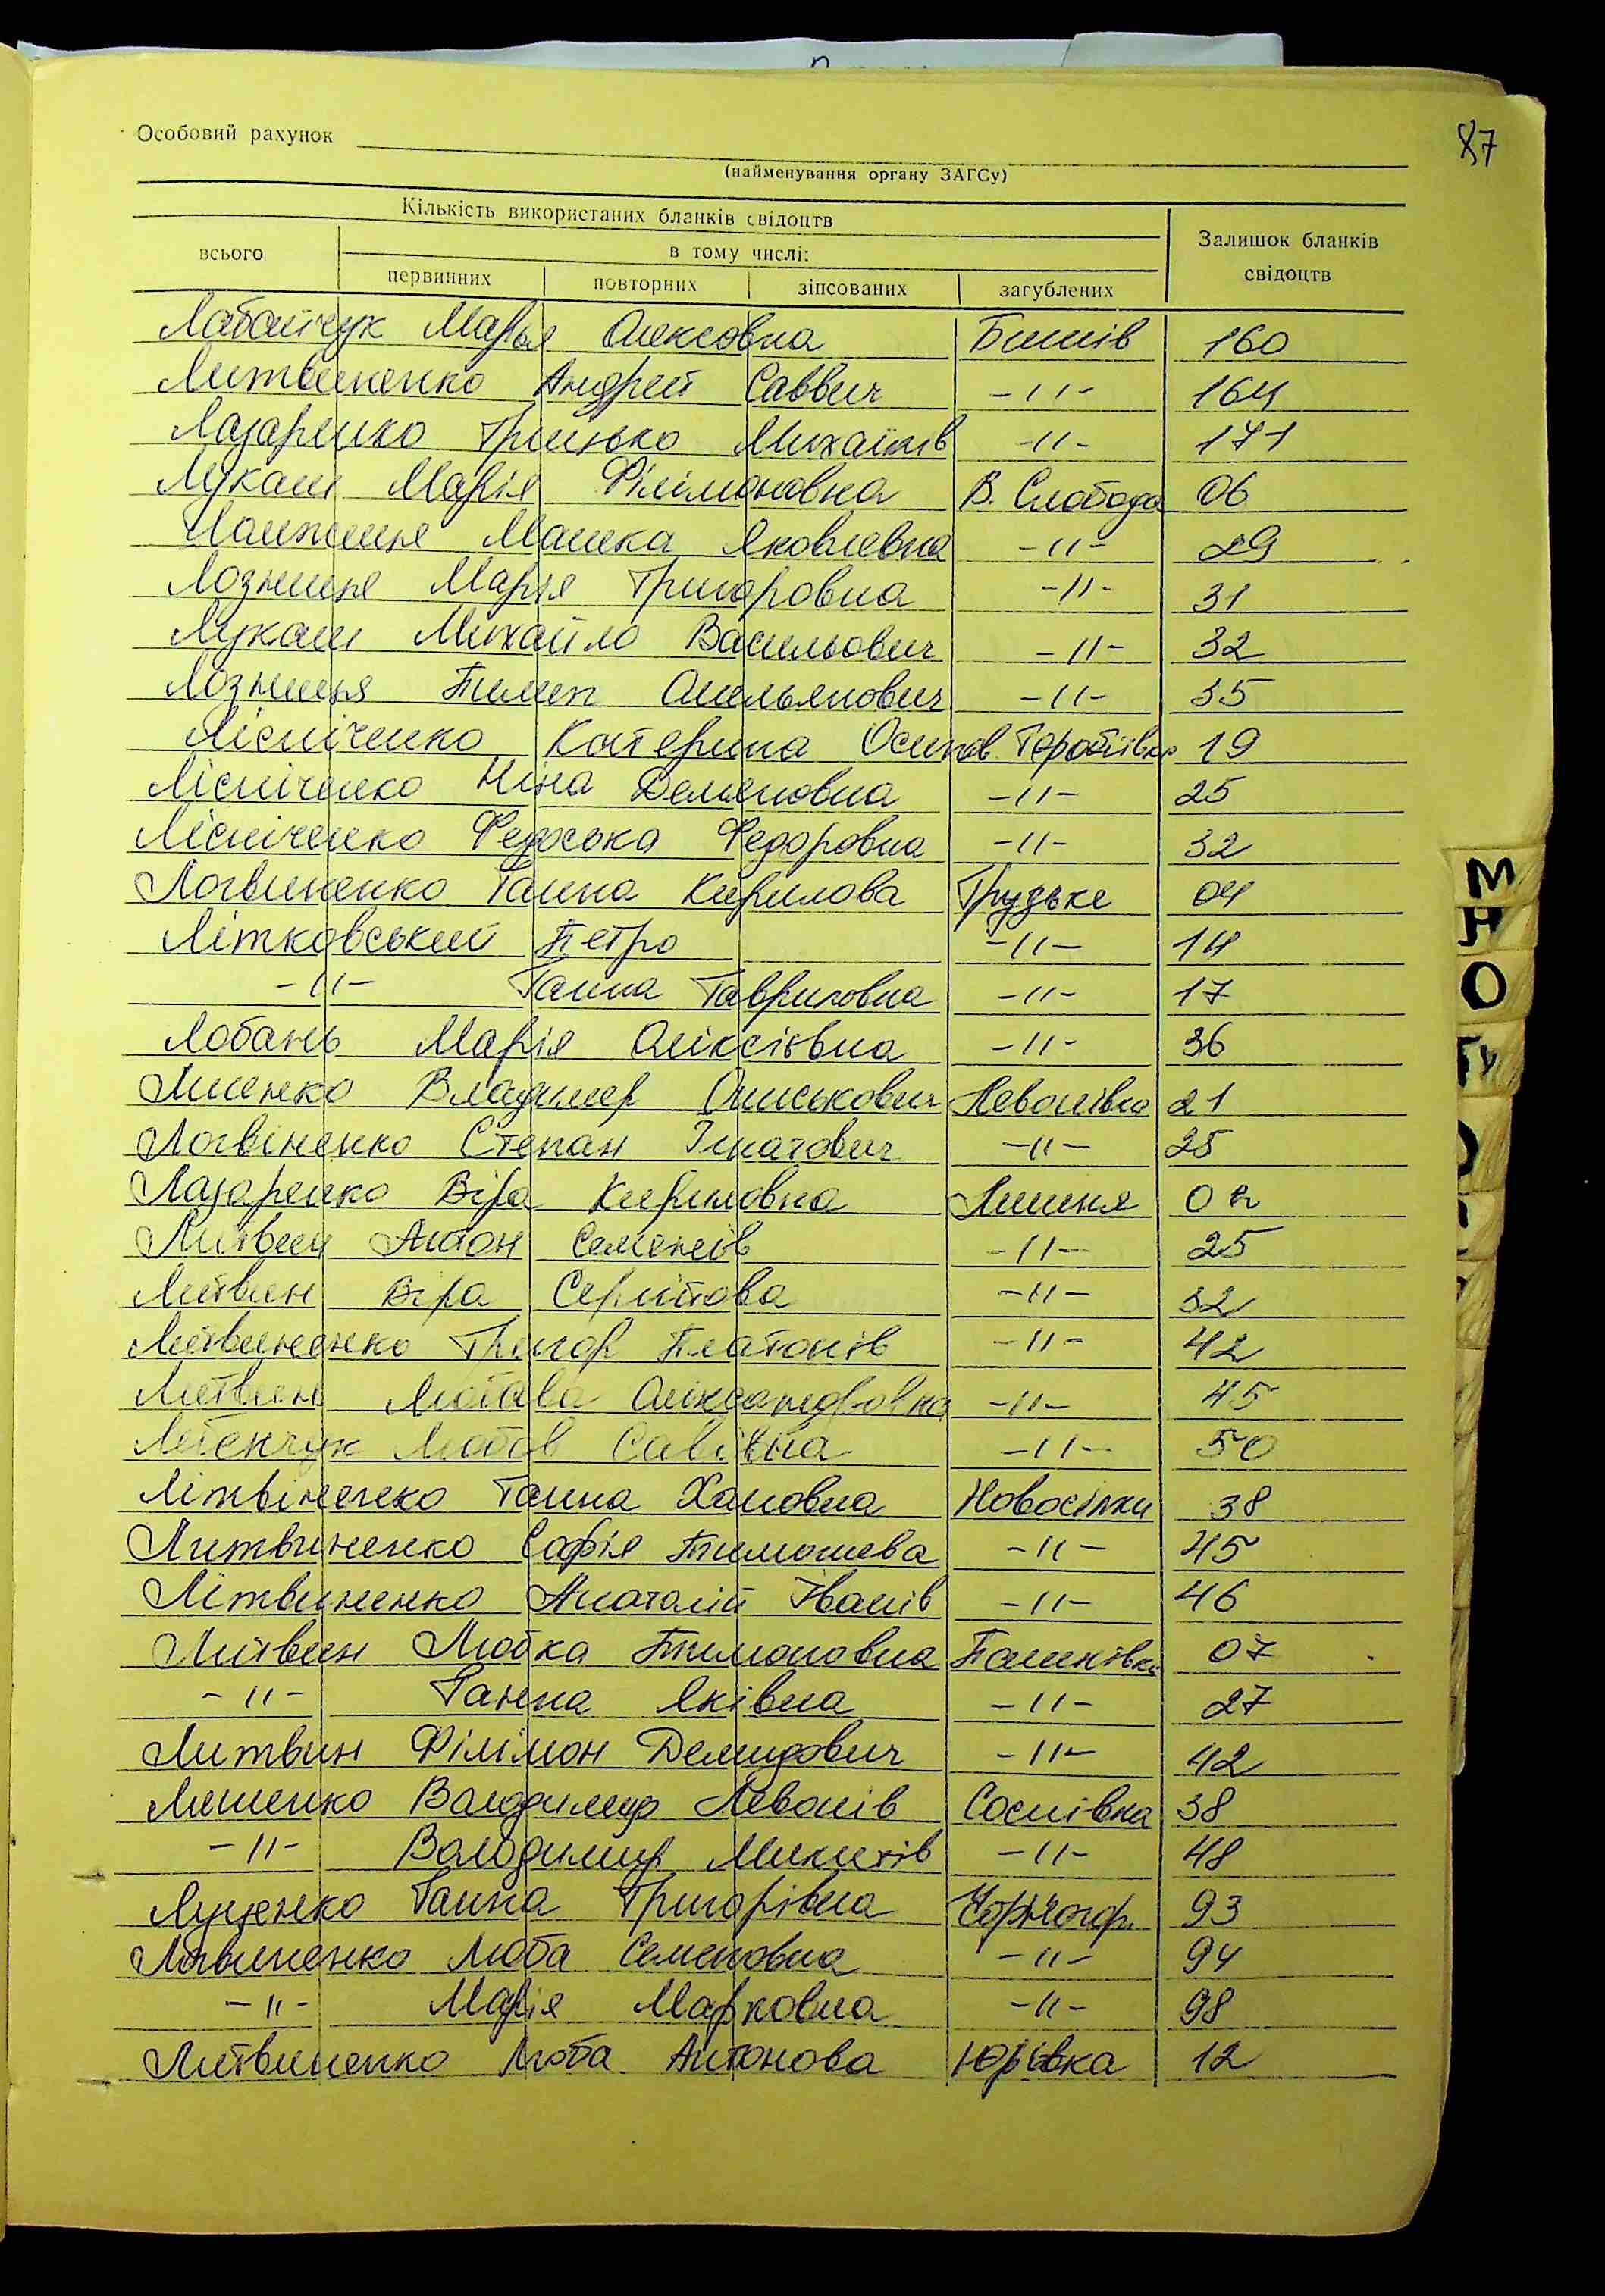 87
Особовий рахунок
(найменування органу ЗАГСу)
Кількість використаних бланків свідоцтв
всього
в тому числі:
первинних повторних зіпсованих загублених
Залишок бланків свідоцтв
Лабайчук Марья Олексовна Бишів 160
Литвиненко Андрей Саввич -11- 164
Лазаренко Грицько Михайлів -11- 171
Лукаш Марія Філімоновна В. Слобода 06
Машка Яковлевна -11- 29
Лозниця Марія Григоровна -11- 31
Лукаш Михайло Васильович -11- 32
Лозниця Пилип Омельянович -11- 35
Лісніченко Катерина Осипов. Горобіївка 19
Лісніченко Ніна Демяновна -11- 25
Лісніченко Федоська Федоровна -11- 32
Логвиненко Ганна Кирилова Грузьке 04
Літковський Петро -11- 14
-11- Ганна Гавриловна -11- 17
Лобань Марія Оліксіївна -11- 36
Лисенко Владимер Ониськович Левонівка 21
Логвіненко Степан Ігнатович -11- 25
Лазаренко Віра Кириловна Лишня
Литвин Антон Семенів -11- 25
Литвин Віра -11- 32
Литвиненко Григор Платонів -11- 42
Литвин Олександровна -11- 45
Савівна -11- 50
Літвіненко Ганна Хамовна Новосілки 38
Литвиненко Софія Тимошева -11- 45
Літвиненко Анатолій Іванів -11- 46
Литвин Любка Тимоновна Пашківка 07
-11- Ганна Яківна -11- 27
Литвин Філімон Демидович -11- 42
Ляшенко Володимир Левонів Соснівка 38
-11- Володимир Микитів -11- 48
Луценко Ганна Григорівна Чорногор. 93
Логвиненко Люба Семеновна -11- 94
-11- Марія Марковна -11- 98
Литвиненко Люба Антонова Юрівка 12
М
Н
О